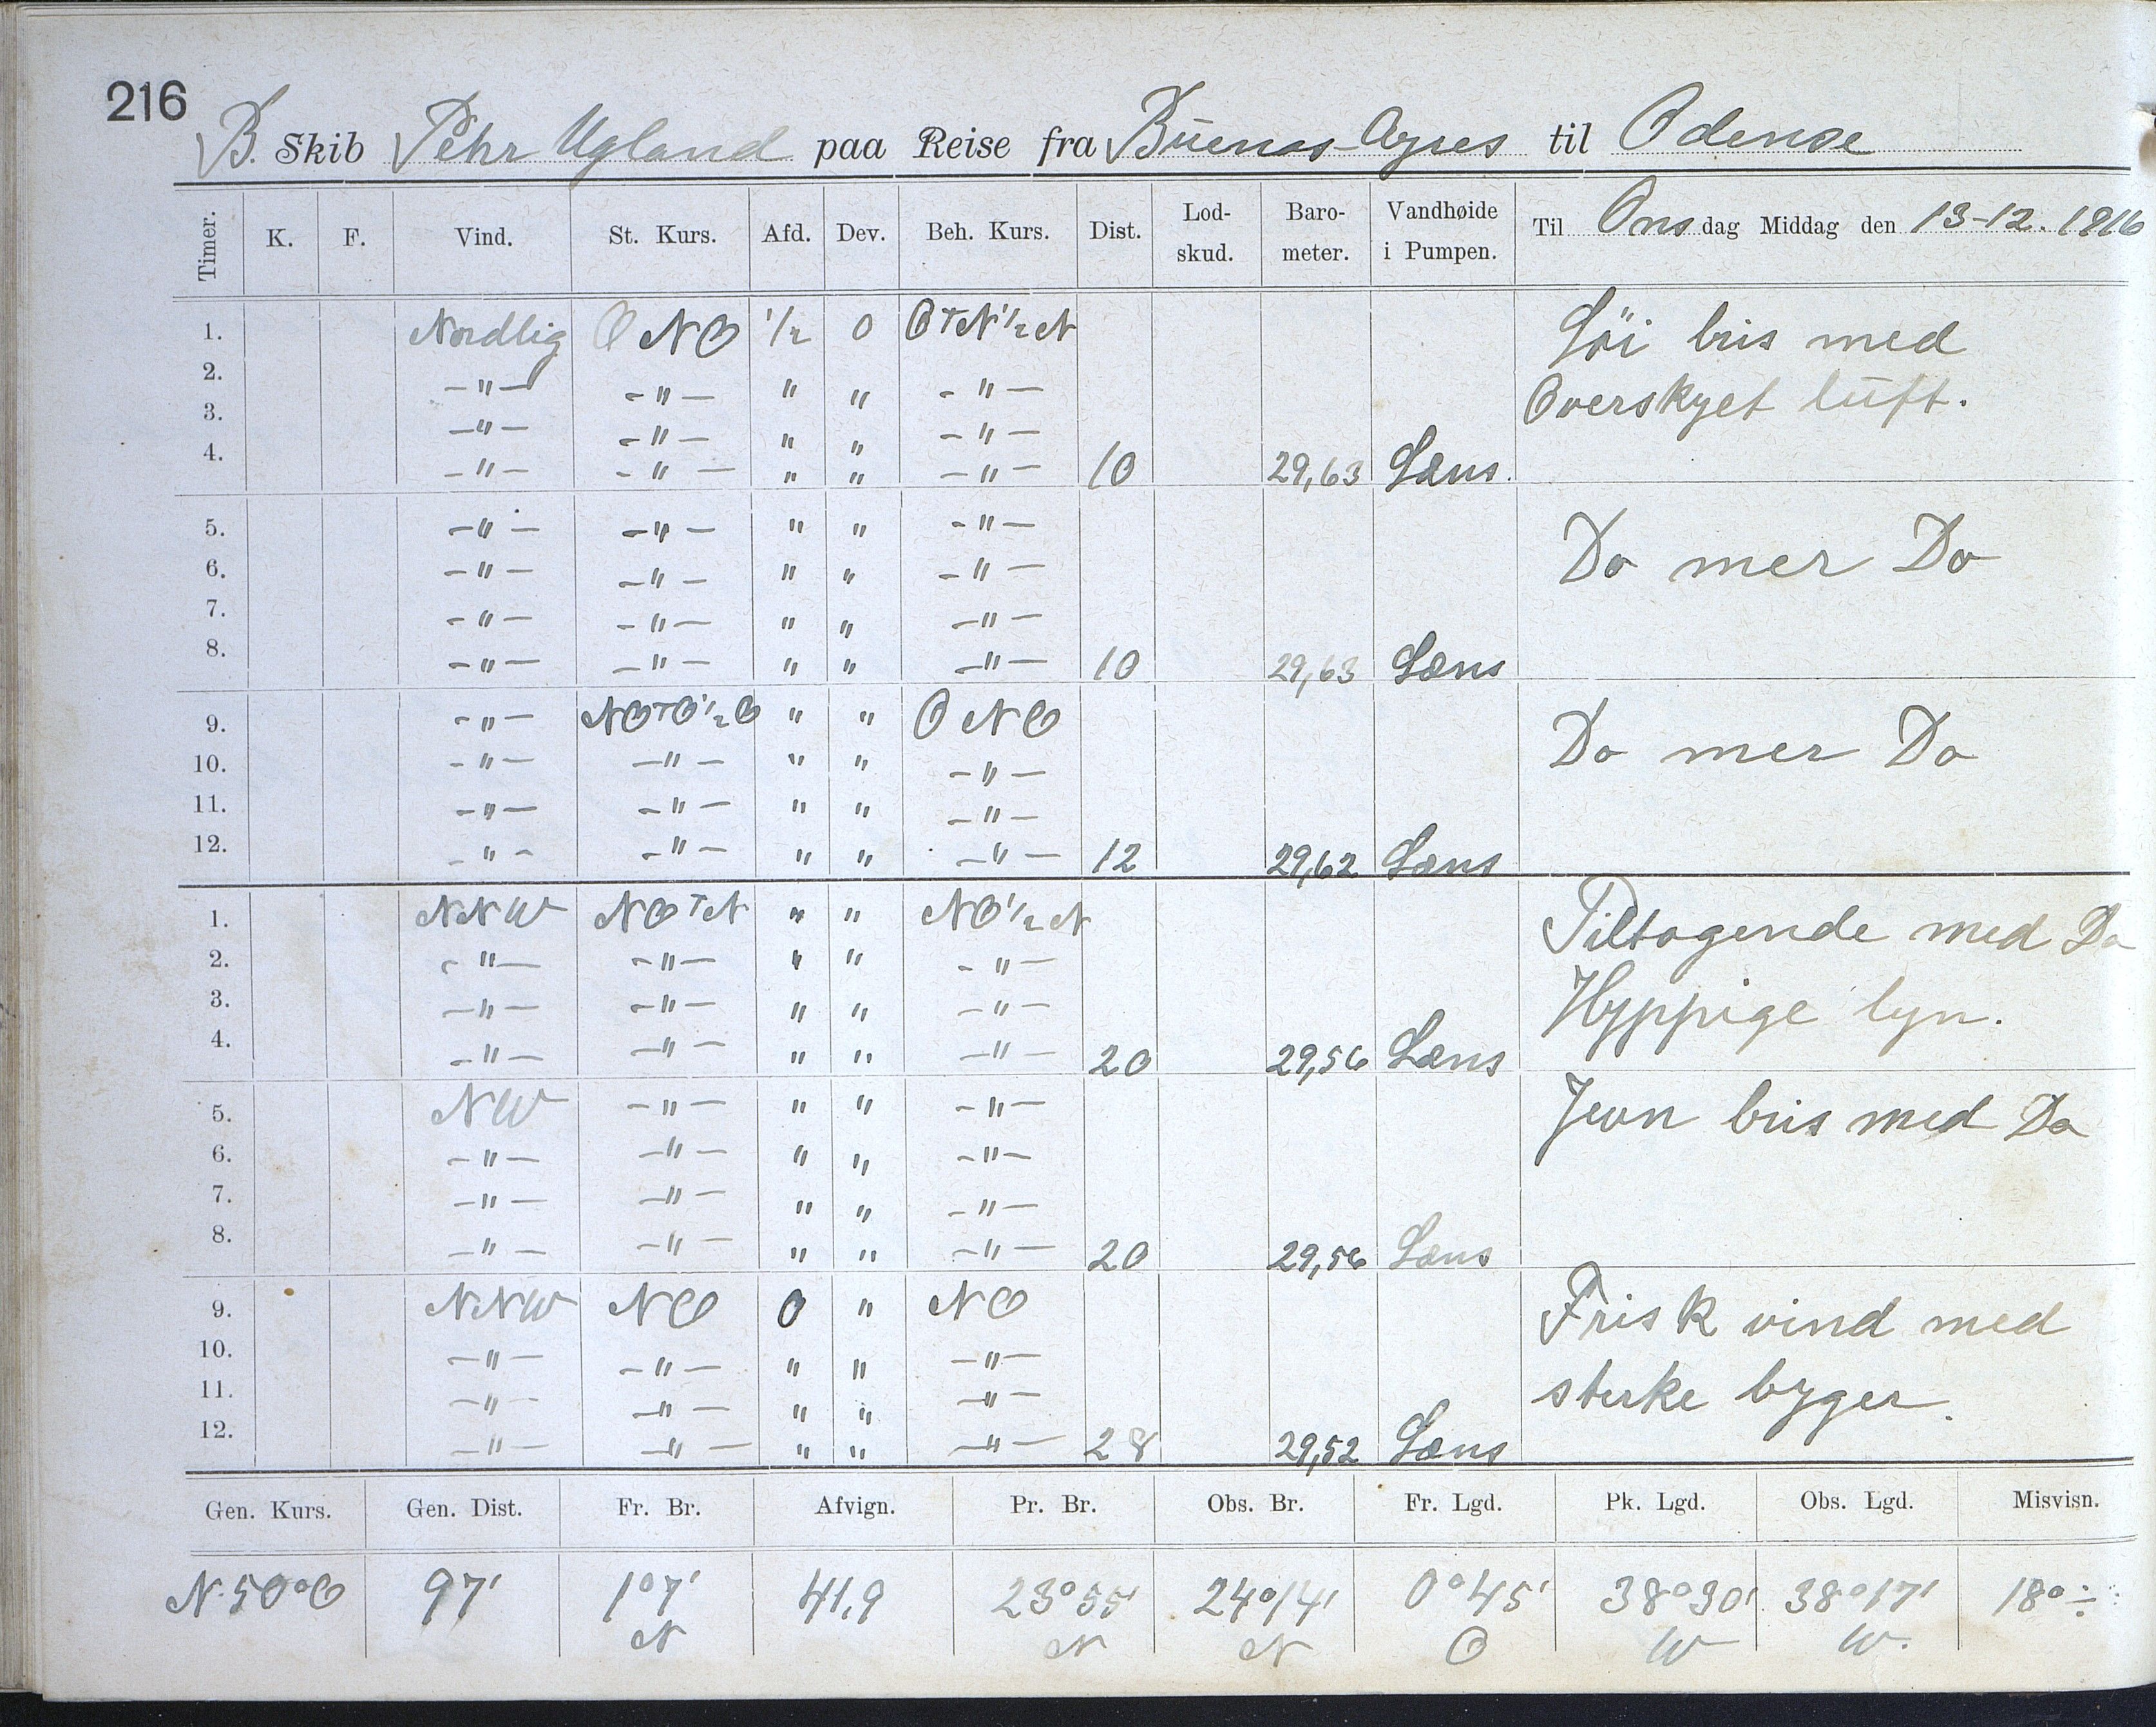 216
B. Skib Pehr Ugland paa Reise fra Buenos-Ayres til Odense
Timer. K. F. Vind. St. Kurs. Afd. Dev. Beh. Kurs. Dist. Lod-skud. Baro-meter. Vandhøide i Pumpen. Til Onsdag Middag den 13-12. 1916
1. Nordlig ONO 1/2 0 OTN 1/2 N Löi bris med
2. -"- -"- " " -"- Overskyet luft.
3. -"- -"- " " -"-
4. -"- -"- " " -"- 10 29,63 Læns.
5. -"- -"- " " -"- Do mer Do
6. -"- -"- " " -"-
7. -"- -"- " " -"-
8. -"- -"- " " -"- 10 29,63 Læns
9. -"- NOTO 1/2 O " " ONO Do mer Do
10. -"- -"- " " -"-
11. -"- -"- " " -"-
12. -"- -"- " " -"- 12 29,62 Læns
1. NNW NOTN " " NO 1/2 N Tiltagende med Do
2. -"- -"- " " -"- Hyppige lyn.
3. -"- -"- " " -"-
4. -"- -"- " " -"- 20 29,56 Læns
5. NW -"- " " -"- Jevn bris med Do
6. -"- -"- " " -"-
7. -"- -"- " " -"-
8. -"- -"- " " -"- 20 29,56 Læns
9. NNW NO 0 " NO Frisk vind med
10. -"- -"- " " -"- sterke byger.
11. -"- -"- " " -"-
12. -"- -"- " " -"- 28 29,52 Læns
Gen. Kurs. Gen. Dist. Fr. Br. Afvign. Pr. Br. Obs. Br. Fr. Lgd. Pk. Lgd. Obs. Lgd. Misvisn.
N. 50° O 97' 1°7' 41,9 23°55' 24°14' 0°45' 38°30' 38°17' 18° ÷
N N N O W W.